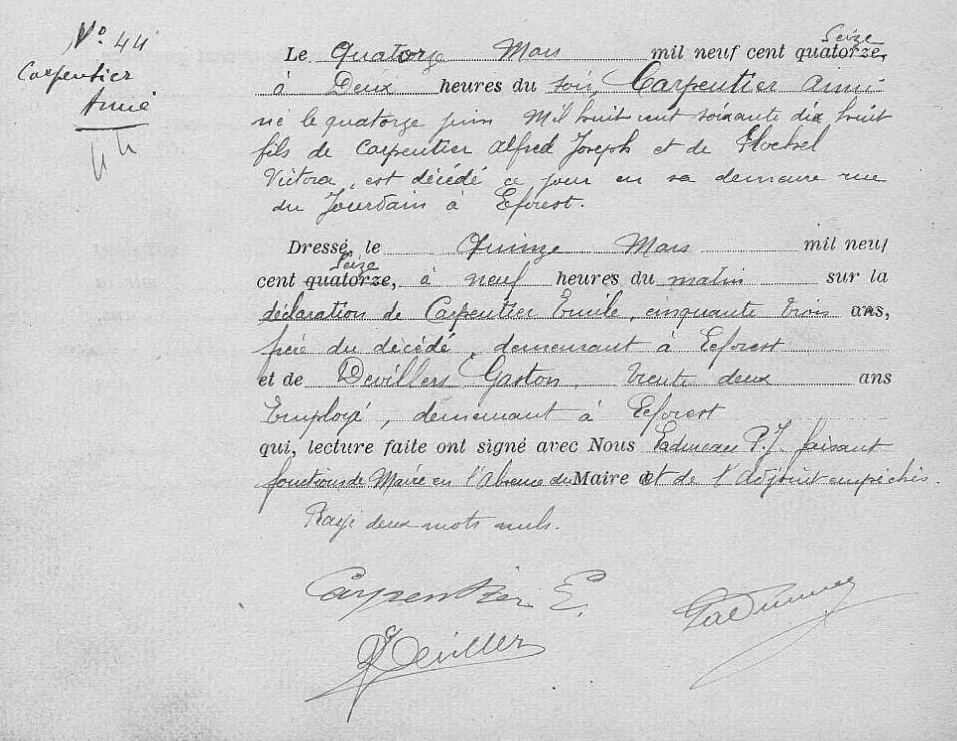 N° 44
Carpentier
Aimé
Seize
Le Quatorze Mars mil neuf cent quatorze,
à Deux heures du soir, Carpentier Aimé
né le quatorze juin Mil huit cent soixante dix huit
fils de Carpentier Alfred Joseph et de
Victoria, est décédé ce jour en sa demeure rue
du Jourdain à Eeforest.
Dressé, le Quinze Mars mil neuf
Seize
cent quatorze, à neuf heures du matin sur la
déclaration de Carpentier Emile, cinquante trois ans,
frère du décédé, demeurant à Eeforest
et de Devillers Gaston, trente deux ans
Employé, demeurant à Eeforest
qui, lecture faite ont signé avec Nous P. J. faisant
fonctions de Maire en l'Absence du Maire et de l'Adjoint empêchés.
Rayé deux mots nuls.
Carpentier E.
Devillers